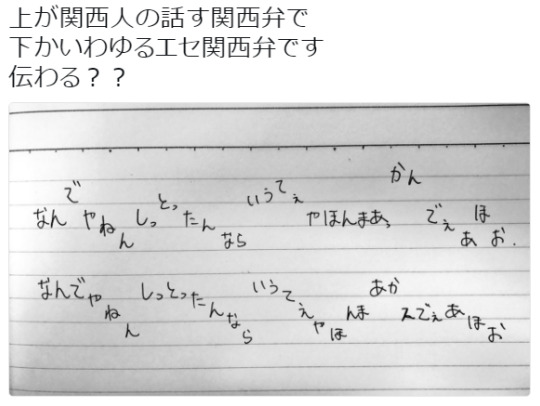 上が関西人の話す関西弁で
下かいわゆるエセ関西弁です
伝わる？？
なんでやねん しっとったんなら いうてぇやほんまあっかんでぇあほお.
なんでやねん しっとったんなら いうてぇやほんまあかんでぇあほお